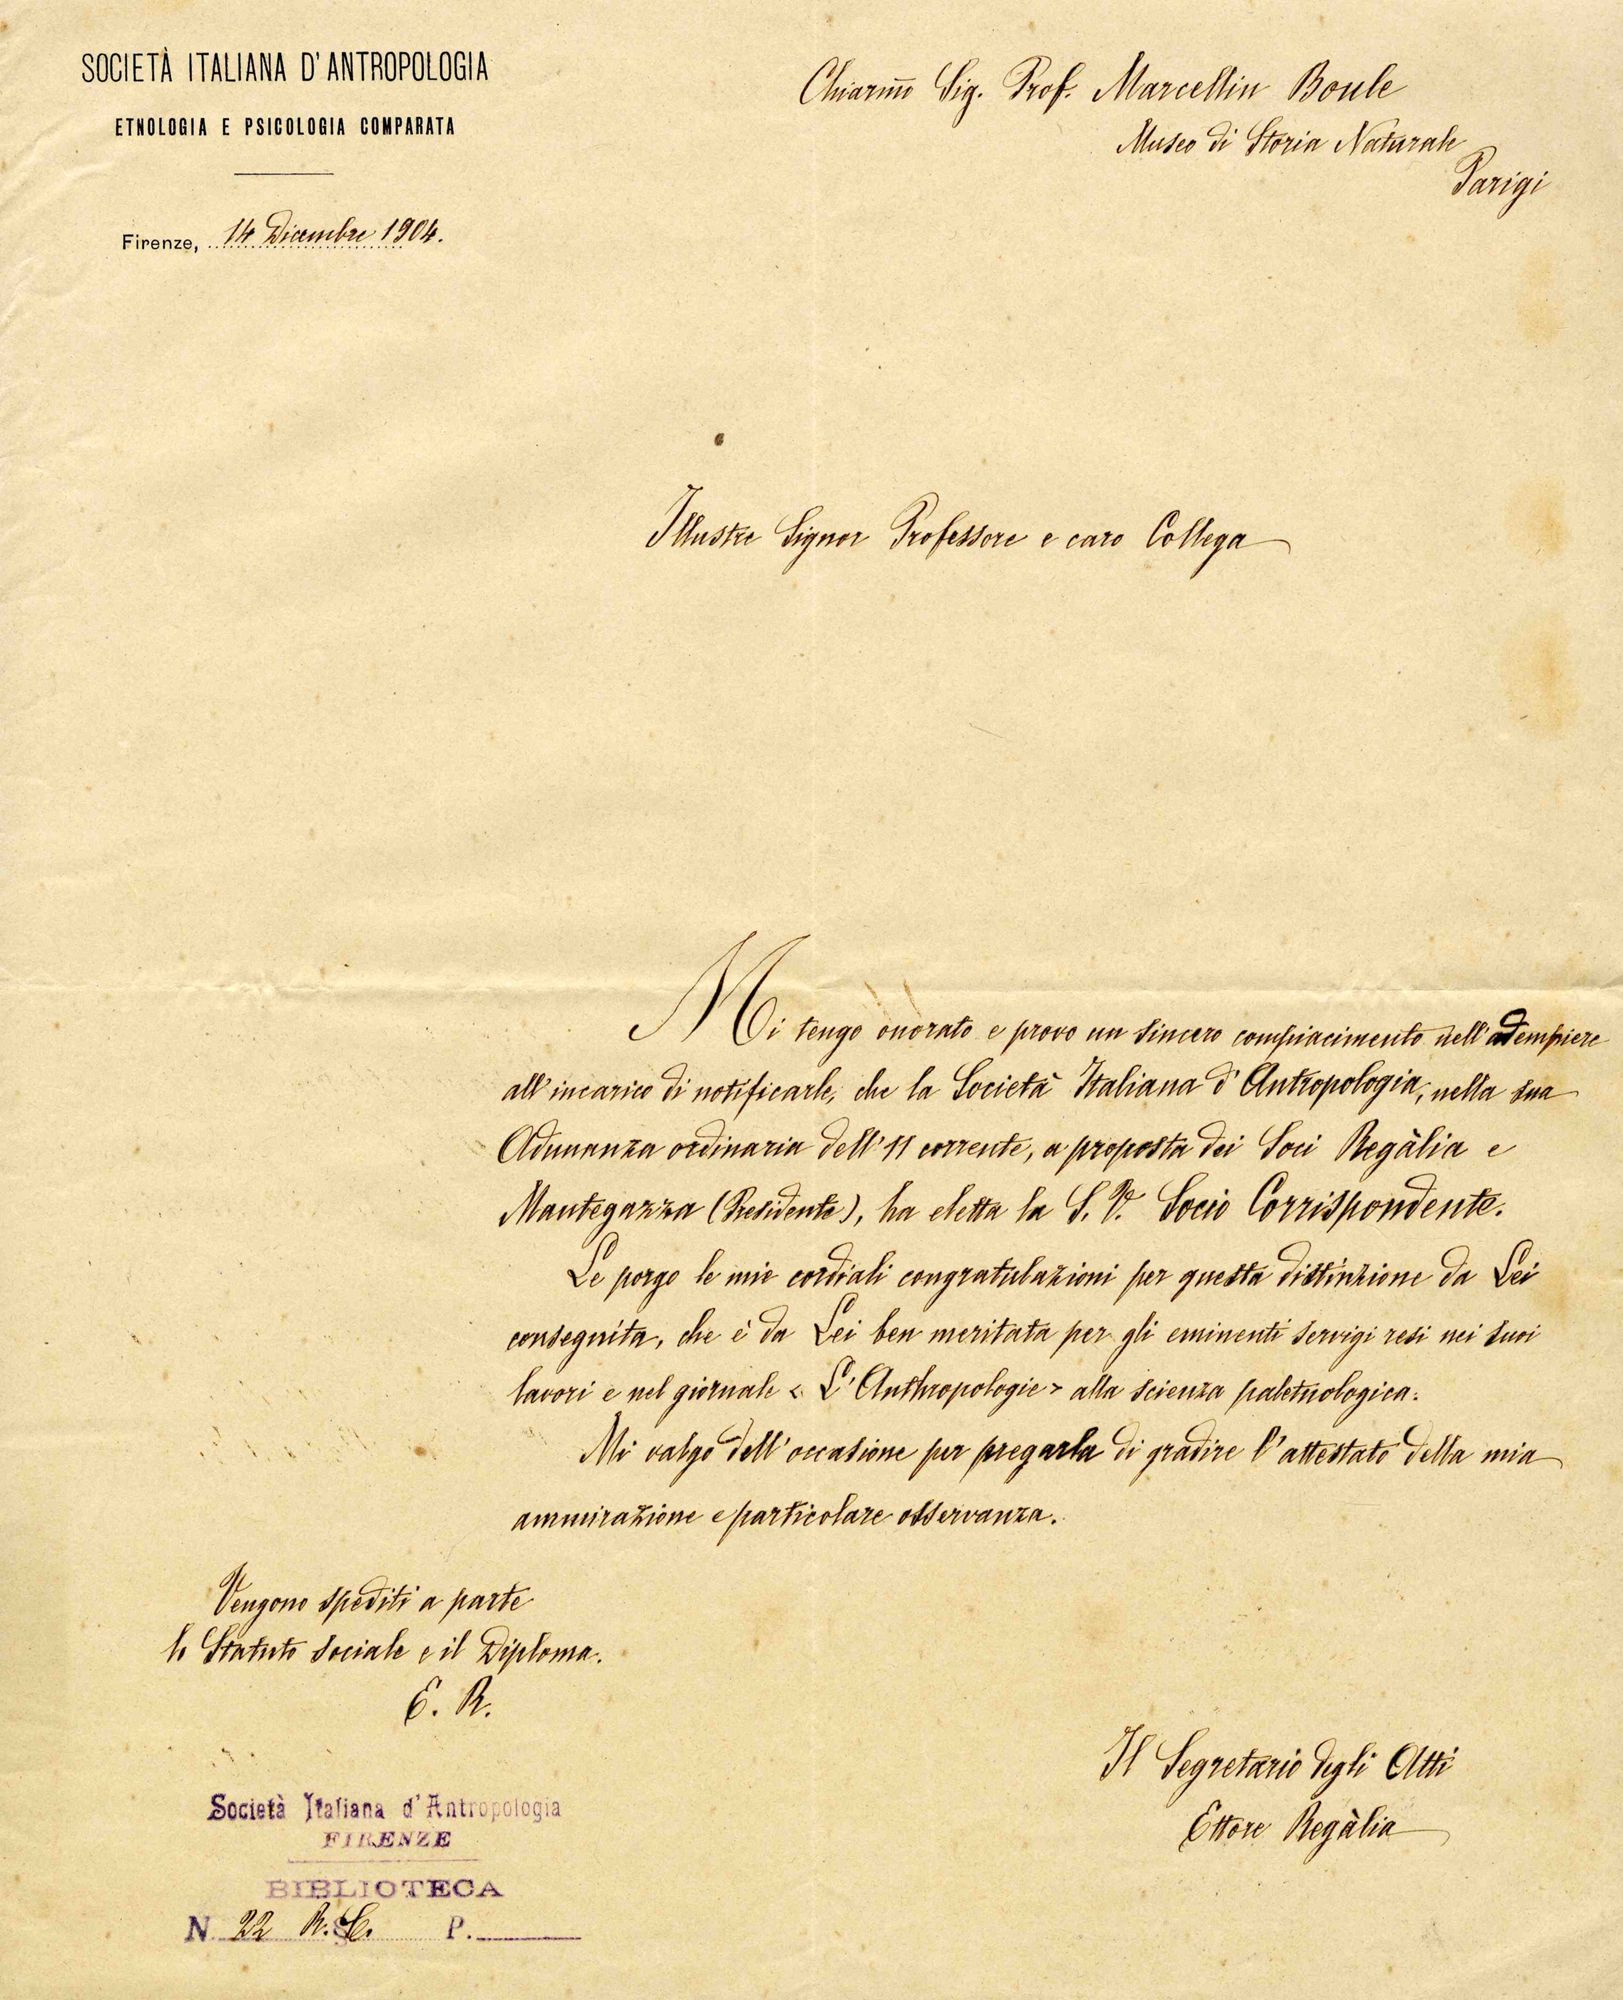 SOCIETÀ ITALIANA D'ANTROPOLOGIA
ETNOLOGIA E PSICOLOGIA COMPARATA
Firenze, 14 Dicembre 1904.
Chiarmo Sig. Prof. Marcellin Boule
Museo di Storia Naturale
Parigi
Illustre Signor Professore e caro Collega
Mi tengo onorato e provo un sincero compiacimento nell'adempiere
all'incarico di notificarle, che la Società Italiana d'Antropologia, nella sua
Adunanza ordinaria dell'11 corrente, a proposta dei Soci Regàlia e
Mantegazza (Presidente), ha eletta la S. V. Socio Corrispondente.
Le porgo le mie cordiali congratulazioni per questa distinzione da Lei
conseguita, che è da Lei ben meritata per gli eminenti servigi resi nei suoi
lavori e nel giornale « L'Anthropologie » alla scienza paletnologica.
Mi valgo dell'occasione per pregarla di gradire l'attestato della mia
ammirazione e particolare osservanza.
Vengono spediti a parte
lo Statuto sociale e il Diploma.
E. R.
Il Segretario degli Atti
Ettore Regàlia
Società Italiana d'Antropologia
FIRENZE
BIBLIOTECA
N. 22 R. P.